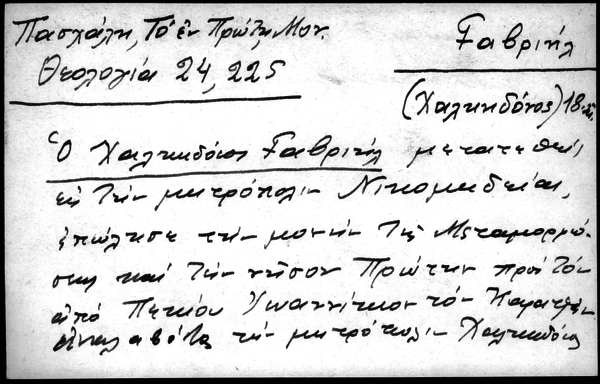 Πασχάλη, Τὸ ἐν Πρώτῃ Μον.
Θεολογία 24, 225
Γαβριήλ
(Χαλκηδόνος) 18
Ὁ Χαλκηδόνος Γαβριήλ μετατεθεὶς
εἰς τὴν μητρόπολιν Νικομηδείας,
ἐπώλησε τὴν μονὴν τῆς Μεταμορφώ-
σεως καὶ τὴν νῆσον Πρώτην πρὸς τὸν
ἀπὸ Ἰωαννίκιον τὸν
τὴν μητρόπολιν Χαλκηδόνος